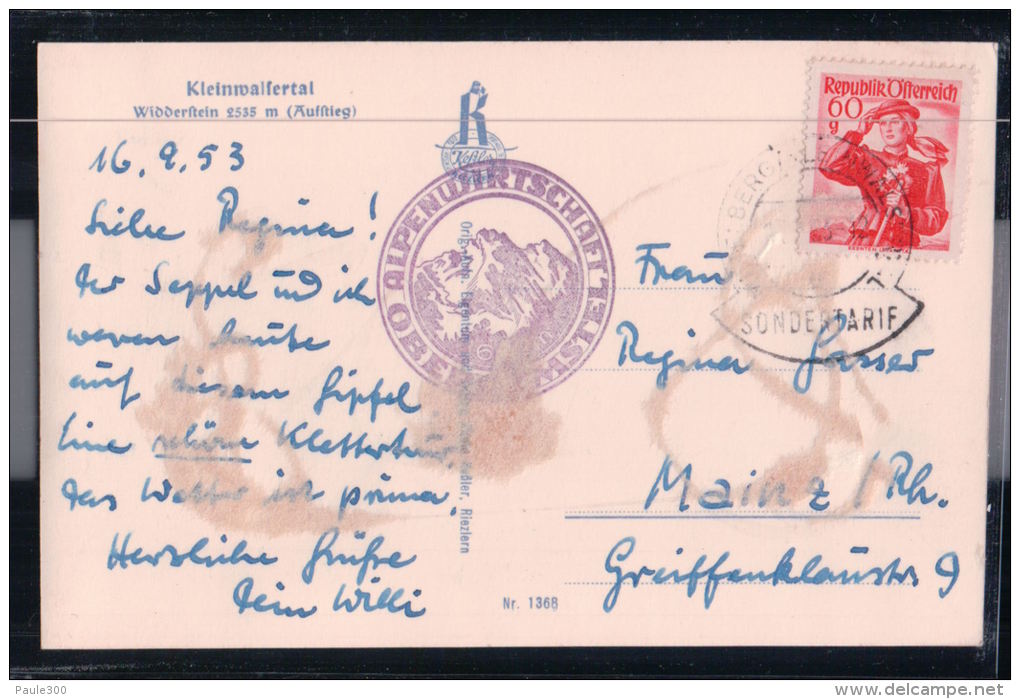 Kleinwalsertal
Widderstein 2535 m (Aufstieg)
16.9.53
Liebe Regina!
der Seppel und ich
waren heute
auf diesem Gipfel
Eine schöne Klettertour,
das Wetter ist prima.
Herzliche Grüße
Dein Willi
K
Keßler
ALPENWIRTSCHAFT
OBE
Orig.
Riezlern
Nr. 1368
Republik Österreich
60
g
KÄRNTEN
SONDERTARIF
Frau
Regina Gasser
Mainz / Rh.
Greiffenklaustr. 9
Paule300
delcampe.net